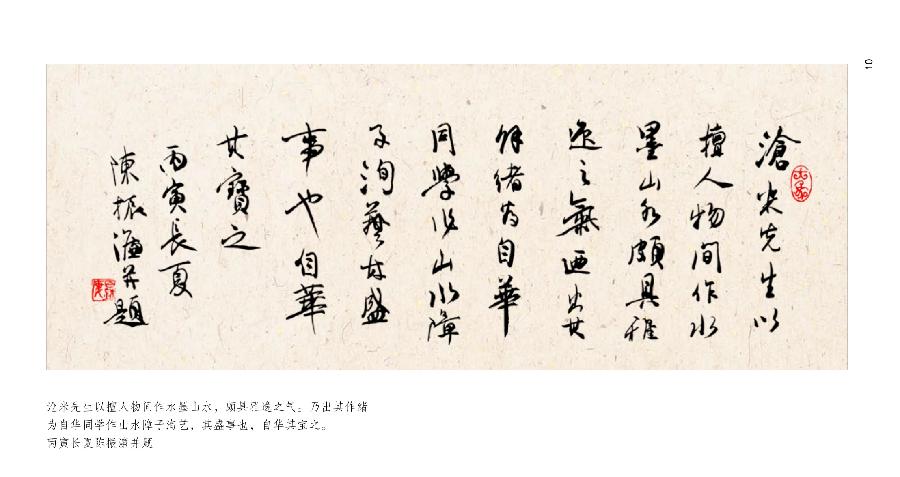 滄米先生以
擅人物间作水
墨山水頗具雅
逸之氣迺出其
餘緒为自華
同學作山水障
子洵藝林盛
事也自華
其寶之
丙寅長夏
陳振濂并題
沧米先生以擅人物间作水墨山水，颇具雅逸之气。乃出其作绪
为自华同学作山水障子洵艺，其盛事也，自华其宝之。
丙寅长夏陈振濂并题
10